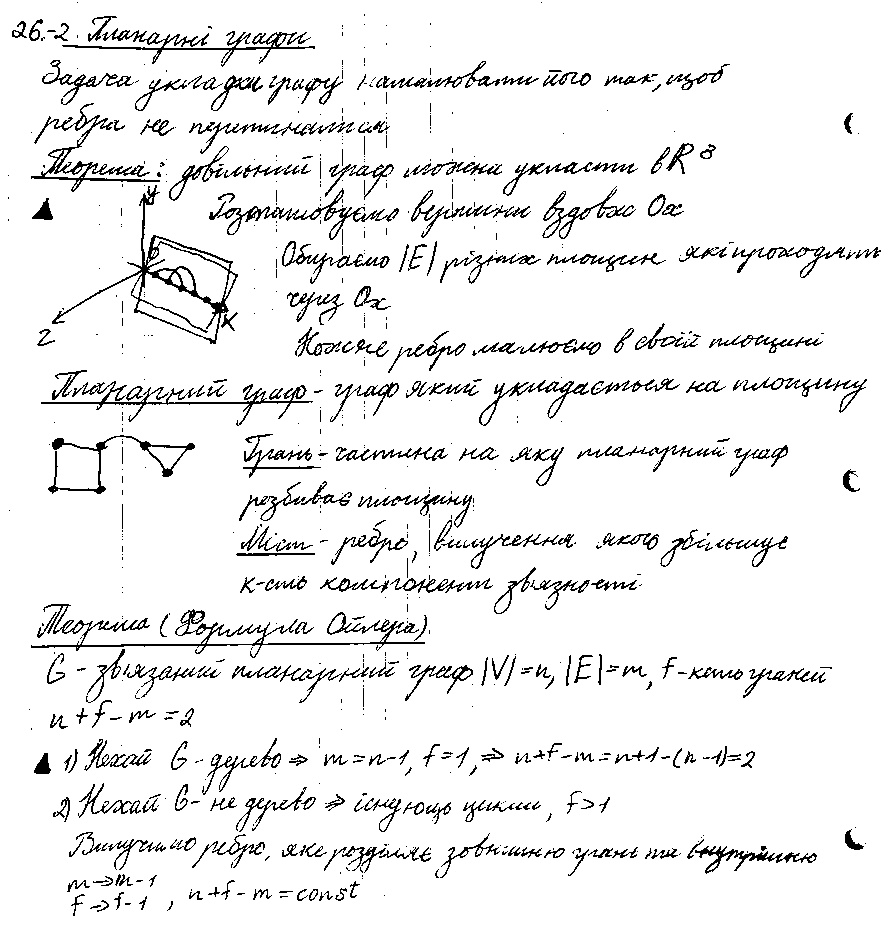 26.-2. Планарні графи
Задача укладки графу намалювати його так, щоб
ребра не перетинались
Теорема: довільний граф можна укласти в R³
Розташовуємо вершини вздовж Ox
Обираємо |E| різних площин які проходять
через Ox
Кожне ребро малюємо в своїй площині
y
z
x
Планарний граф - граф який укладається на площину
Грань - частина на яку планарний граф
розбиває площину
Міст - ребро, вилучення якого збільшує
к-сть компонент звязності
Теорема (Формула Ойлера)
G - звязаний планарний граф |V|=n, |E|=m, f - к-сть граней
n+f-m=2
1) Нехай G - дерево ⇒ m=n-1, f=1, ⇒ n+f-m=n+1-(n-1)=2
2) Нехай G - не дерево ⇒ існують цикли, f>1
Вилучимо ребро, яке розділяє зовнішню грань та внутрішню
m→m-1
f→f-1, n+f-m=const